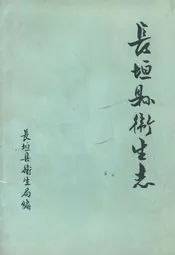 長垣县衛生志
長垣县衛生局编